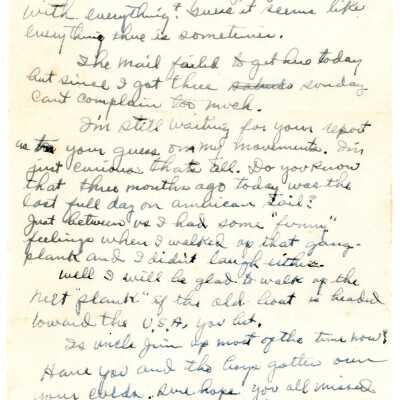 with everything? Guess it seems like
everything shue is sometimes.
The mail faild to get here today
but since I got three sunday
cant complain too much.
I'm still waiting for your report
as to your guess on my movements. I'm
just curious thats all. Do you know
that three months ago today was the
last full day on american soil?
Just between us I had some "funny"
feelings when I walked up that gang-
plank and I didn't laugh either.
Well I will be glad to walk up the
next "plank" if the old boat is headed
toward the U.S.A. you bet.
Is uncle Jim up most of the time now?
Have you and the boys gotten over
your colds. Sure hope you all missed